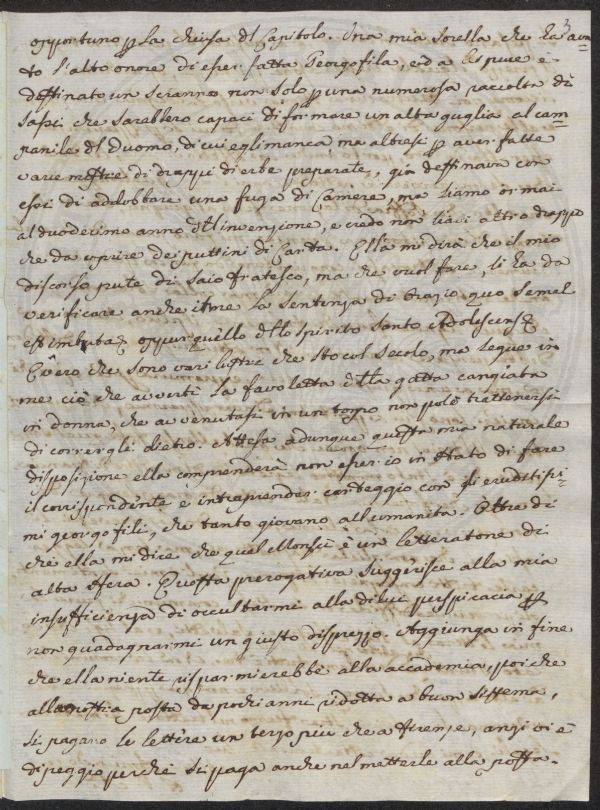 3
opportuno p la chiusa dl Capitolo. Una mia sorella che ha avu
to l'alto onore di esser fatta Georgofila, ed a lei pure è
destinato un scranno non solo p una numerosa raccolta di
sassi che sarebbero capaci di formare un alta guglia al cam
panile dl Duomo, di cui egli manca, ma altresi p aver fatte
varie mostre di drappi di erbe preparate, già destinava con
essi di addobbare una fuga di Camere, ma siamo ormai
al duodecimo anno dll invenzione, e credo non siavi altro drappo
che da coprire dei puttini di Carta. Ella mi dirà che il mio
discorso pute di saio fratesco, ma che vuol fare, si ha da
verificare anche in me la sentenza di Orazio quo semel
est imbuta oppur quello dllo spirito santo Adolescens
È vero che sono vari lustri che sto col secolo, ma segue in
me ciò che avvertì la favoletta dlla gatta cangiata
in donna, che avvenutasi in un topo non potè trattenersi
di corrergli dietro. Attesa adunque questa mia naturale
disposizione ella comprenderà non esser io in stato di fare
il corrispondente e intraprender carteggio con gli eruditissi-
mi georgofili, che tanto giovano all umanità. Oltre di
che ella mi dice che quel Monsù è un letteratone di
alta sfera. Questa prerogativa suggerisce alla mia
insufficienza di occultarmi alla di lui perspicacia p
non guadagnarmi un giusto disprezzo. Aggiunga in fine
che ella niente risparmierebbe alla accademia, poi che
alla nostra posta da pochi anni ridotta a buon sistema,
si pagano le lettere un terzo più che a Firenze, anzi vi è
di peggio perché si paga anche nel metterle alla posta.